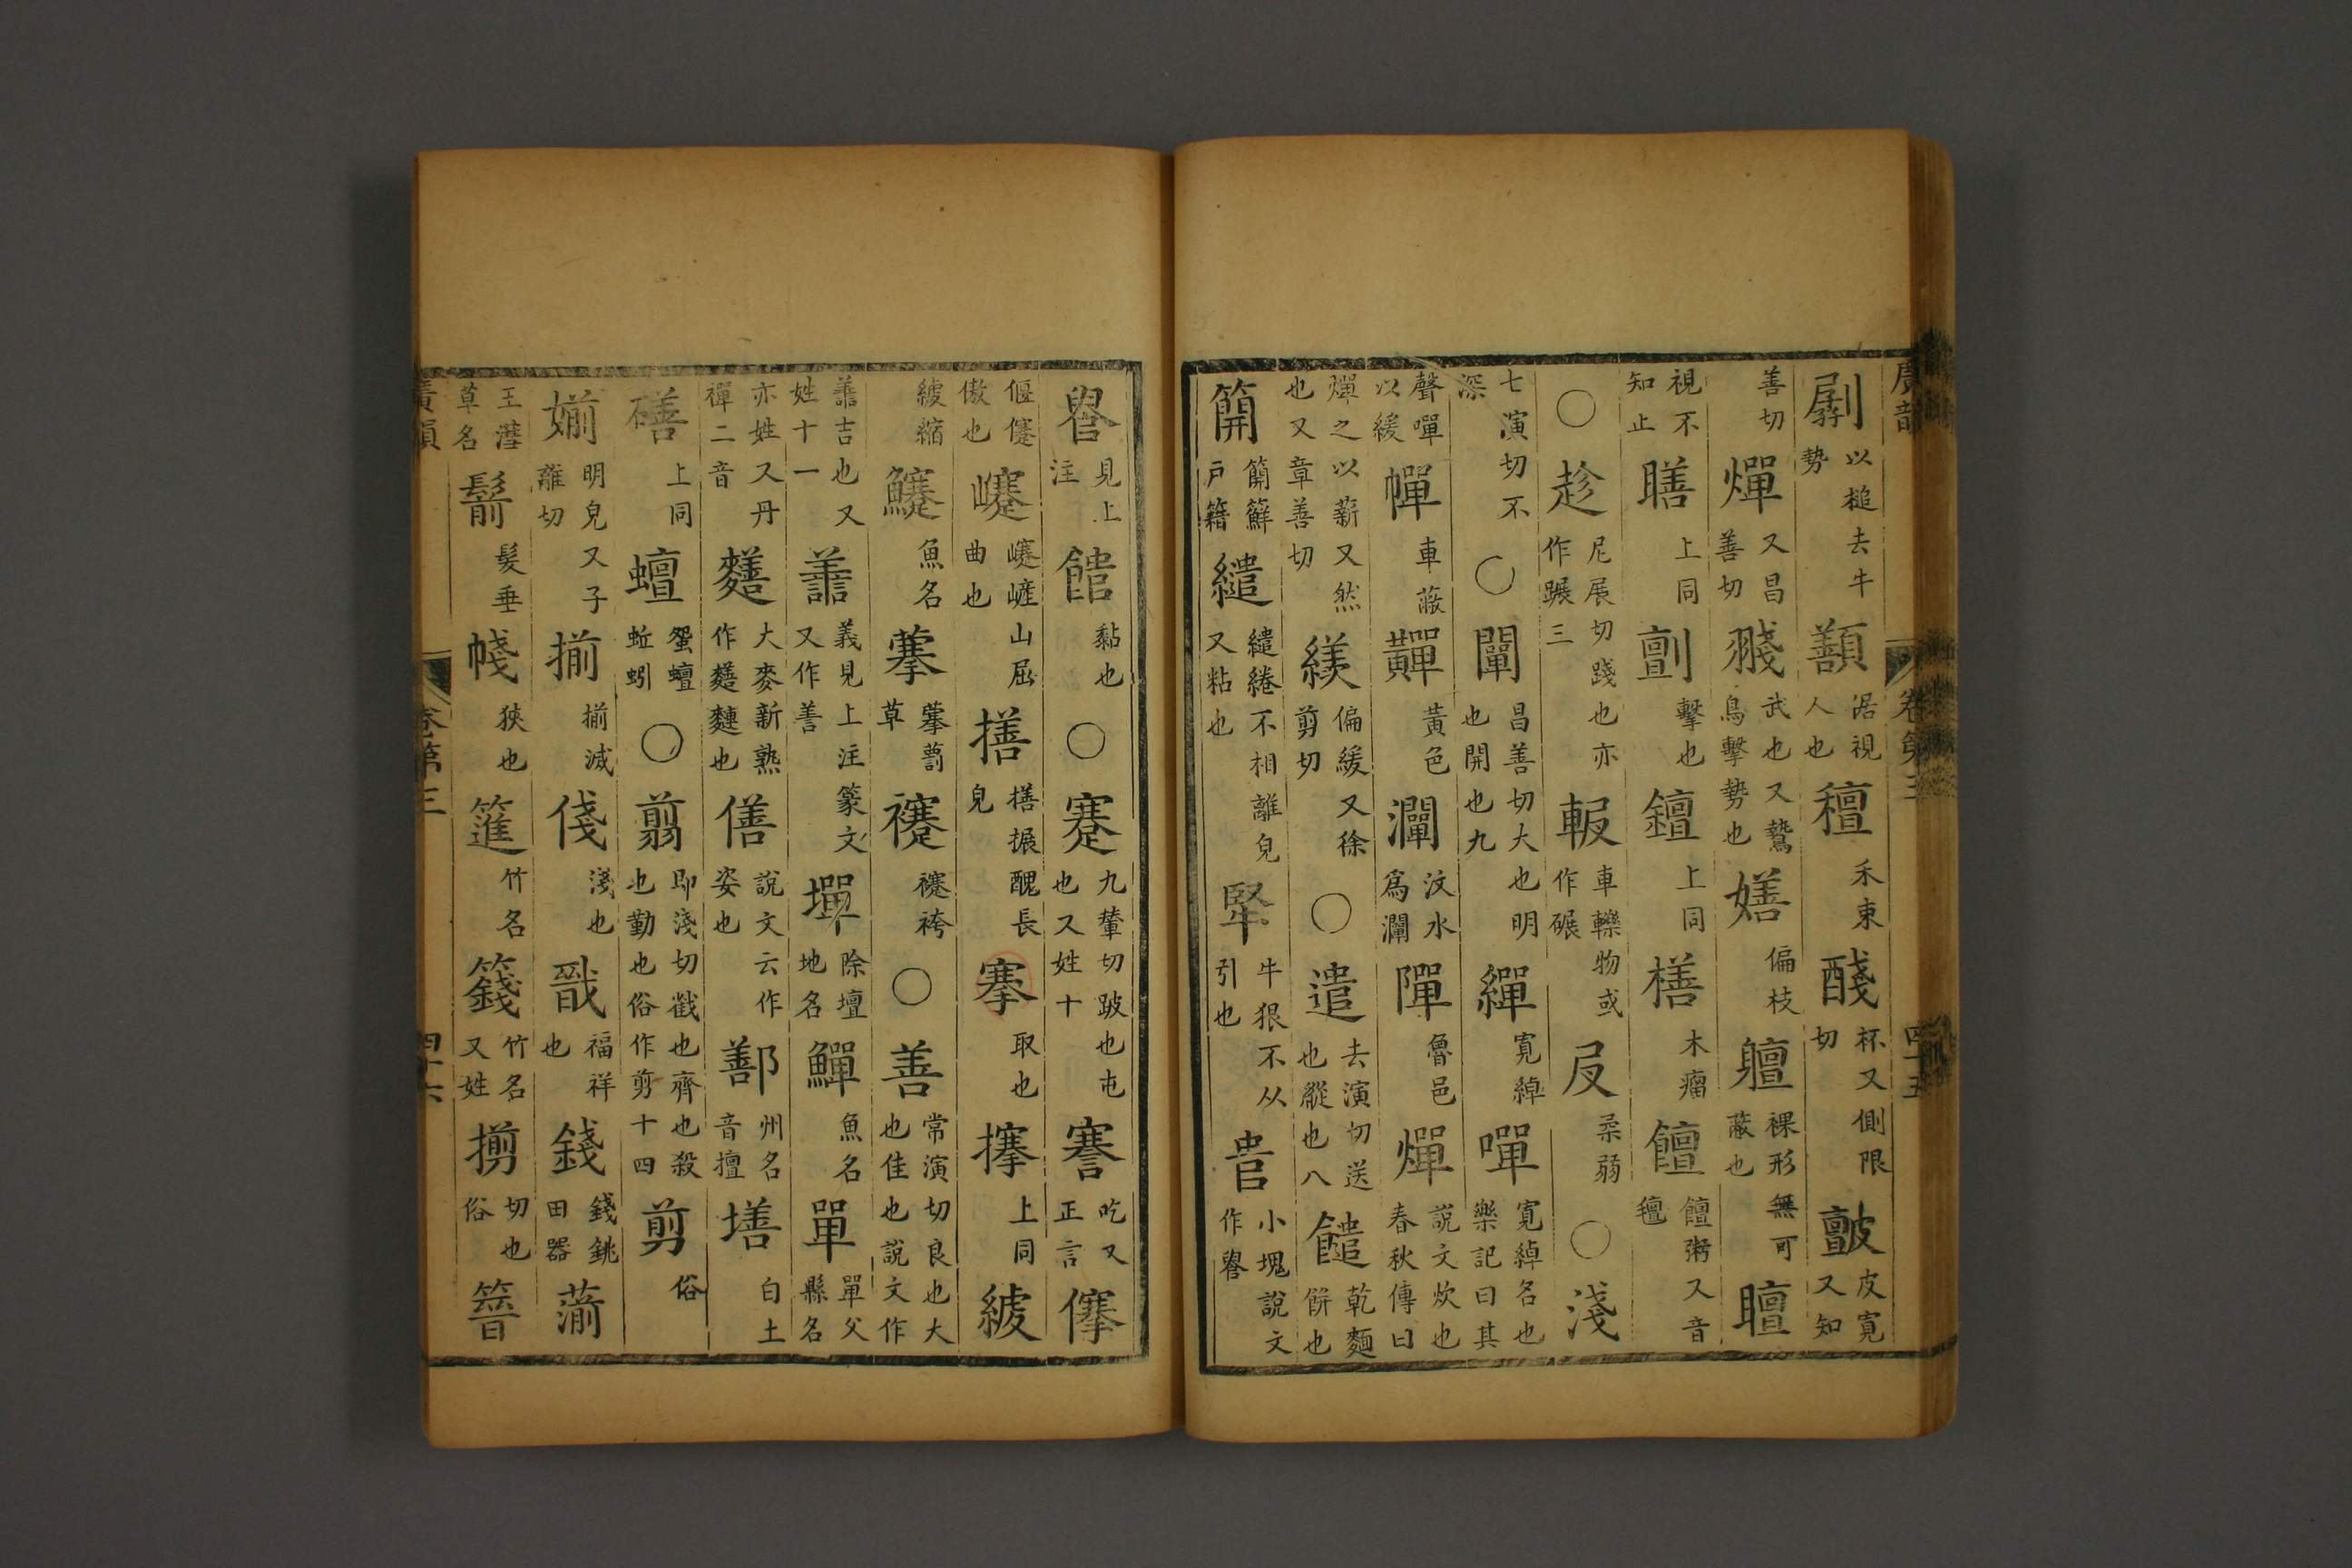 廣韻 卷第三 四十五
劅以槌去牛勢 顫㞐視人也 䆄禾束 醆杯又側限切 皽皮寛又知
善切 燀又昌善切 䎒武也又鷙鳥擊勢也 嫸偏枝 軆裸形無可蔽也 䁴
視不知止 瞎上同 𠠫擊也 𨮍上同 橏木瘤 饘饘粥又音氊
○趁尼展切踐也亦作蹍三 䡊車轢物或作碾 𠬝柔弱 ○淺
七演切不深 ○闡昌善切大也明也開也九 繟寛綽 嘽寛綽名也樂記曰其
聲嘽以緩 幝車蔽 𪏓黃色 灛汶水爲灛 嘽魯邑 燀說文炊也春秋傳曰
燀之以薪又然也又章善切 䋎偏緩又徐剪切 ○遣去演切送也縱也八 䭤乾麵餅也
𥳽簡𥳽戶籍 繾繾綣不相離皃又粘也 掔牛狠不从引也 𠳋小塊說文作𠳋
𠳋見上注 䭤黏也 ○蹇九輦切跛也屯也又姓十 謇吃又正言 㩃
偃蹇傲也 㠾㠾嵼山屈曲也 㩳㩳搌醜長皃 搴取也 攓上同 䋹
䋹縮 鰎魚名 䕪䕪蒟草 襓襓袴 ○善常演切良也大也佳也說文作
譱吉也又姓十一 譱義見上注篆文又作善 墠除壇地名 鱓魚名 單單父縣名
亦姓又丹禪二音 䵇大麥新熟作䵇䵵也 僐說文云作姿也 鄯州名音擅 墡白土
磰上同 蟺䖤蟺蚯蚓 ○翦即淺切截也齊也殺也勤也俗作剪十四 剪俗
媊明皃又子離切 揃揃滅 俴淺也 戩福祥也 錢錢銚田器 葥
王蔧草名 鬋髮垂 帴狹也 𥴈竹名 籛竹名又姓 㨵切也俗 𥳹
廣韻 卷第三 四十六